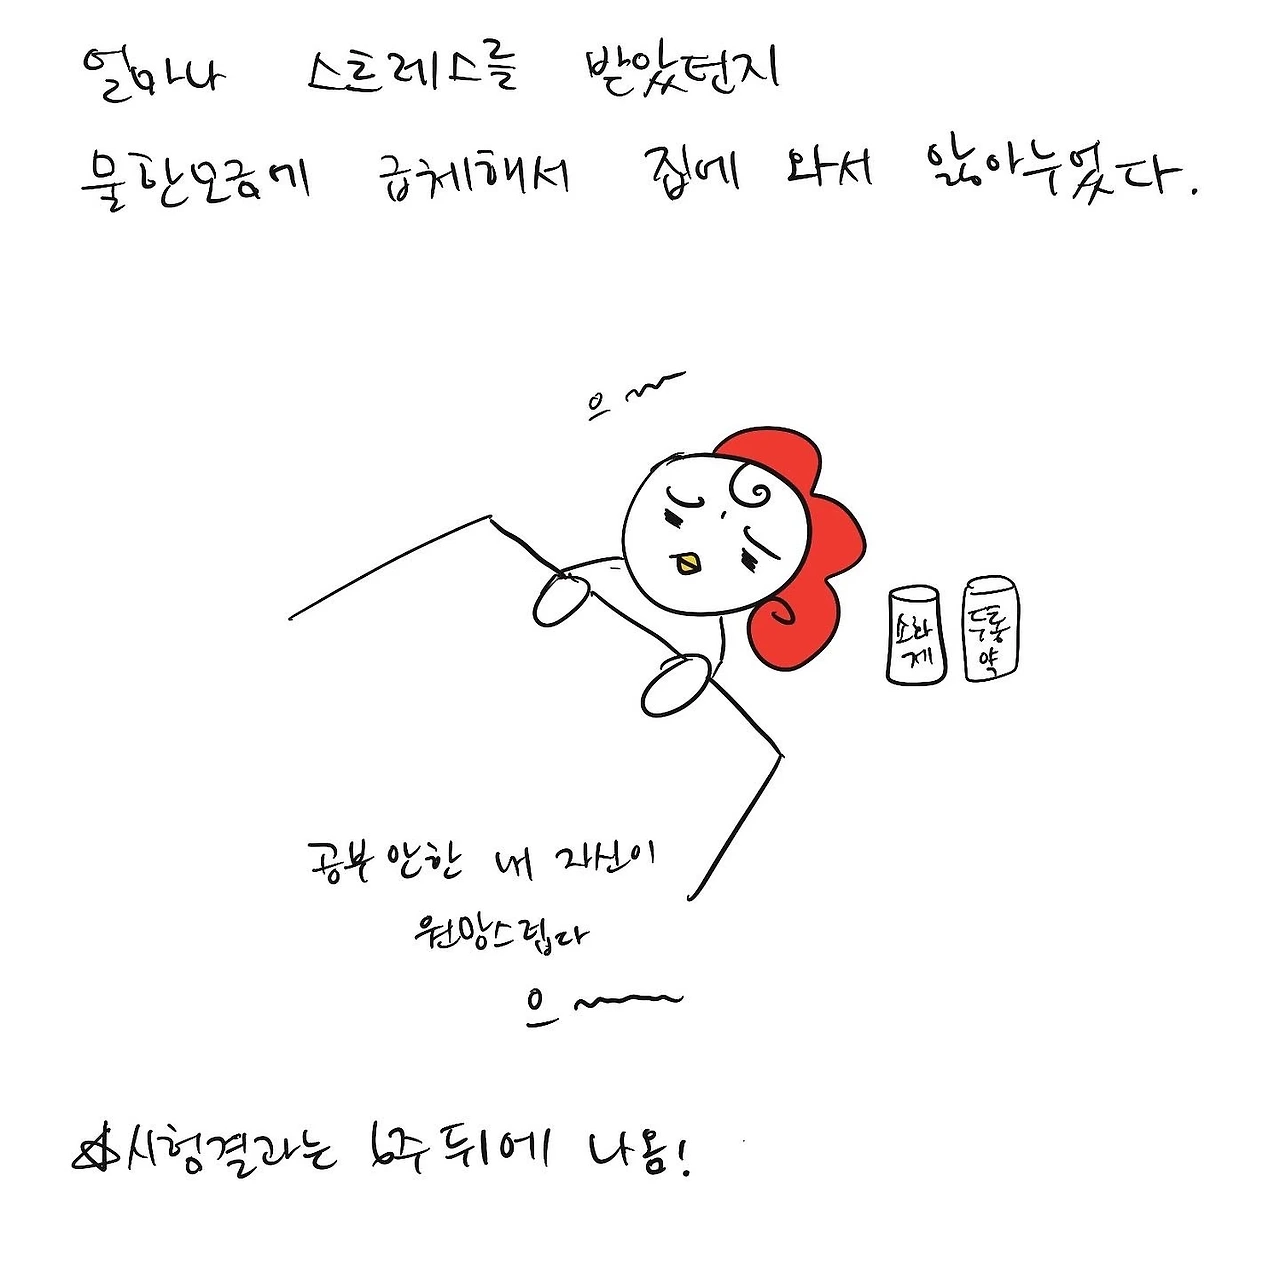 얼마나 스트레스를 받았던지
물한모금에 급체해서 집에 와서 앓아누웠다.
으~
소화
제
두통
약
공부 안한 내 자신이
원망스럽다
으~
☆시험결과는 6주 뒤에 나옴!